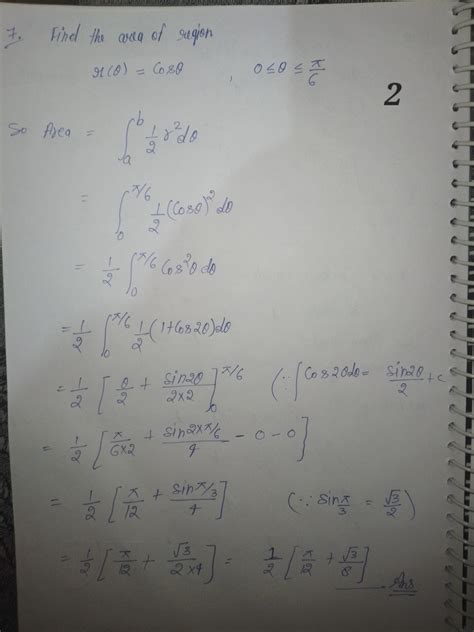 7. Find the area of region
r(θ) = Cosθ , 0 ≤ θ ≤ π/6
2
So Area = ∫_a^b 1/2 r² dθ
= ∫_0^{π/6} 1/2 (Cosθ)² dθ
= 1/2 ∫_0^{π/6} Cos²θ dθ
= 1/2 ∫_0^{π/6} 1/2 (1+Cos2θ) dθ
= 1/2 [θ/2 + sin2θ/(2×2)]_0^{π/6} (∵ ∫Cos2θdθ = sin2θ/2 + c
= 1/2 [π/(6×2) + sin2×π/6 / 4 - 0 - 0]
= 1/2 [π/12 + sin π/3 / 4] (∵ Sin π/3 = √3/2)
= 1/2 [π/12 + √3/(2×4)] = 1/2 [π/12 + √3/8] Ans